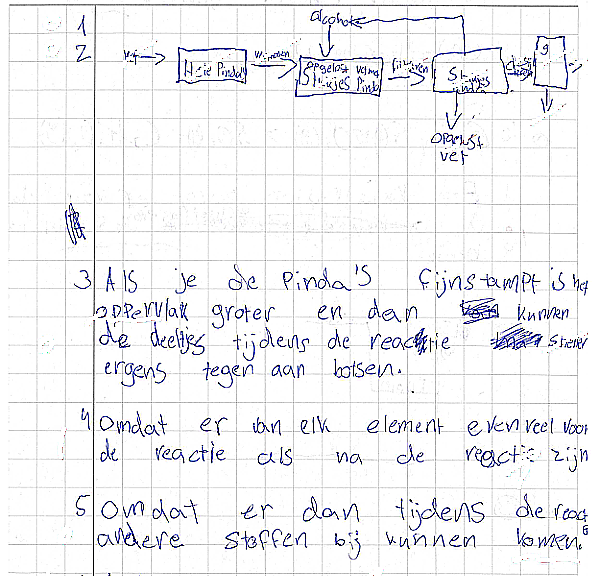 1
2
alcohol
Hele Pinda
opgelost vet
Stukjes Pinda
filtreren
Stukjes
opgelost
vet
3 Als je de Pinda's fijnstampt is het
oppervlak groter en dan kunnen
de deeltjes tijdens de reactie
ergens tegen aan botsen.
4 Omdat er van elk element evenveel voor
de reactie als na de reactie zijn
5 Omdat er dan tijdens de reac
andere stoffen bij kunnen komen.